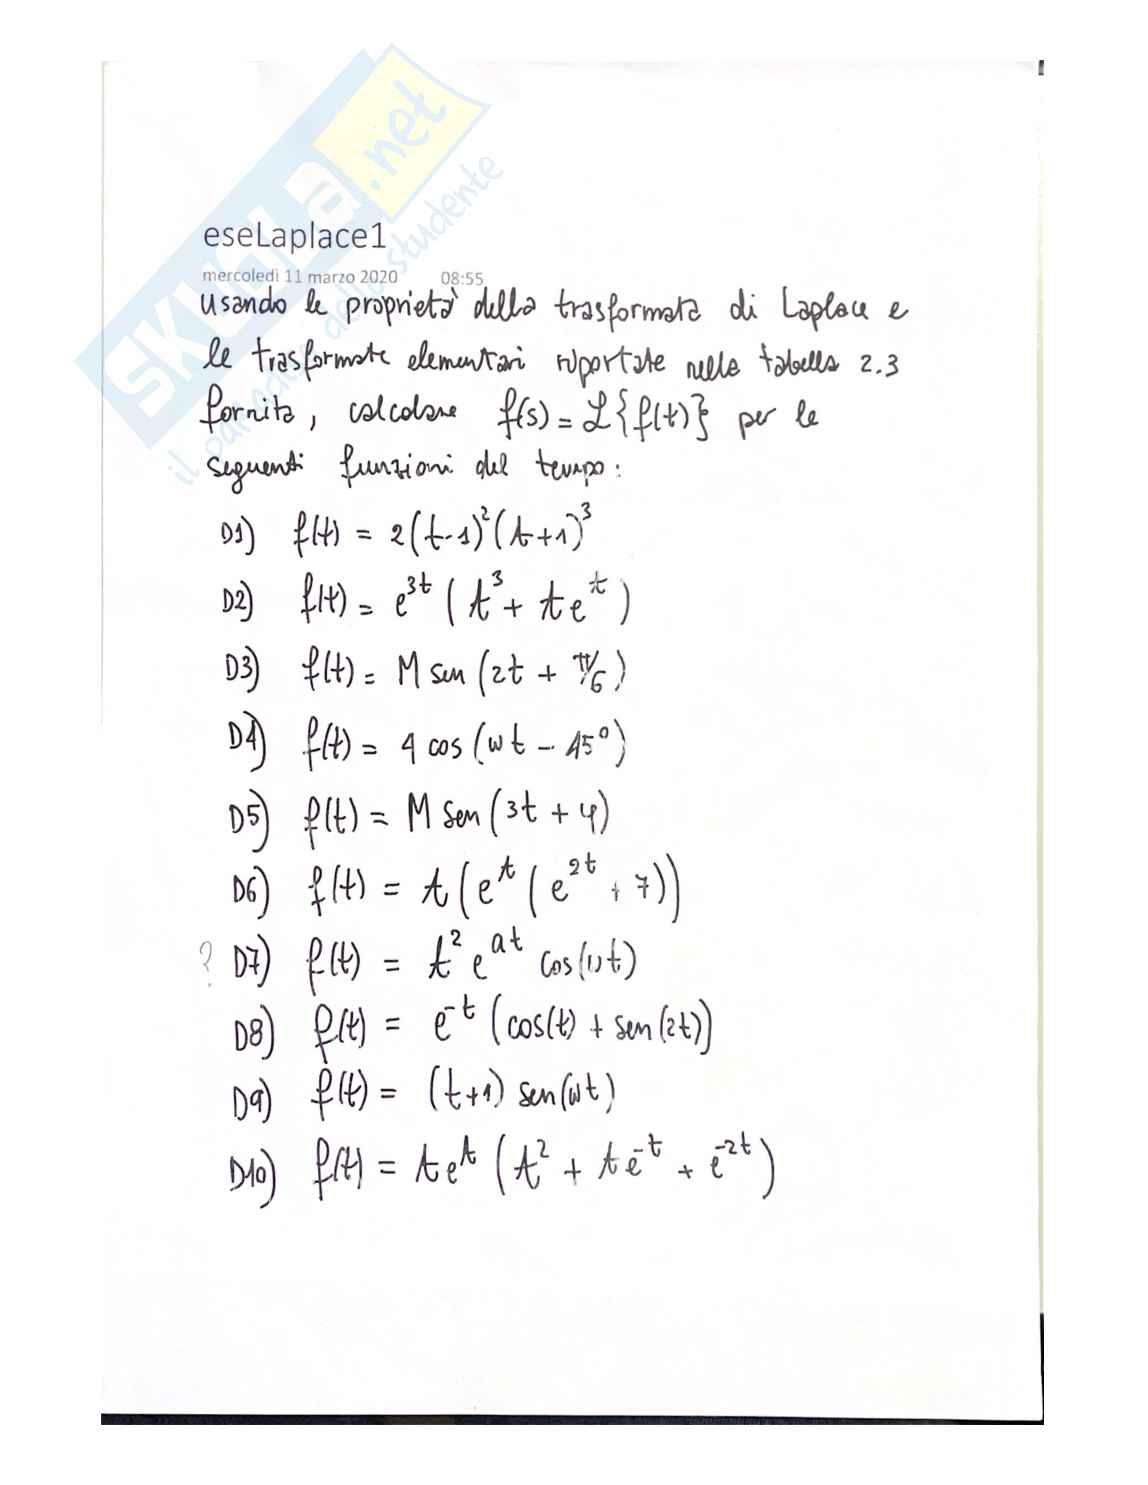 SKUOLA.net
il paradiso dello studente
eseLaplace1
mercoledì 11 marzo 2020 08:55
usando le proprietà della trasformata di Laplace e
le trasformate elementari riportate nella tabella 2.3
fornita, calcolare f(s) = ℒ{f(t)} per le
seguenti funzioni del tempo:
D1) f(t) = 2(t-1)²(t+1)³
D2) f(t) = e³ᵗ (t³ + teᵗ)
D3) f(t) = M sen (2t + π/6)
D4) f(t) = 4 cos (ωt - 45°)
D5) f(t) = M sen (3t + φ)
D6) f(t) = t(eᵗ(e²ᵗ + 7))
? D7) f(t) = t² eᵃᵗ cos(ωt)
D8) f(t) = e⁻ᵗ (cos(t) + sen(2t))
D9) f(t) = (t+1) sen(ωt)
D10) f(t) = teᵗ (t² + te⁻ᵗ + e⁻²ᵗ)